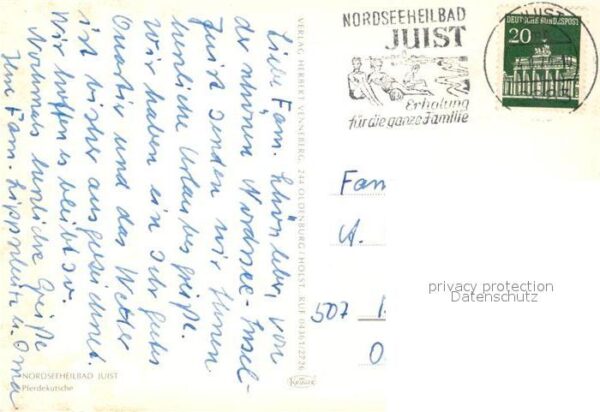 NORDSEEHEILBAD
JUIST
Erholung
für die ganze Familie
DEUTSCHE BUNDESPOST
20
Liebe Fam. von
der schönen Nordsee-Insel-
Juist senden wir Ihnen
herzliche Urlaubsgrüße.
Wir haben ein sehr gutes
Quartier und das Wetter
ist bisher ausgezeichnet.
Wir hoffen es bleibt so.
Nochmals herzliche Grüße
Ihre Fam. u. Oma
VERLAG HERBERT VENNEBERG, 244 OLDENBURG/HOLST. RUF 04361/2726
KRÜGER
NORDSEEHEILBAD JUIST
Pferdekutsche
Fam
A.
507
O
privacy protection
Datenschutz